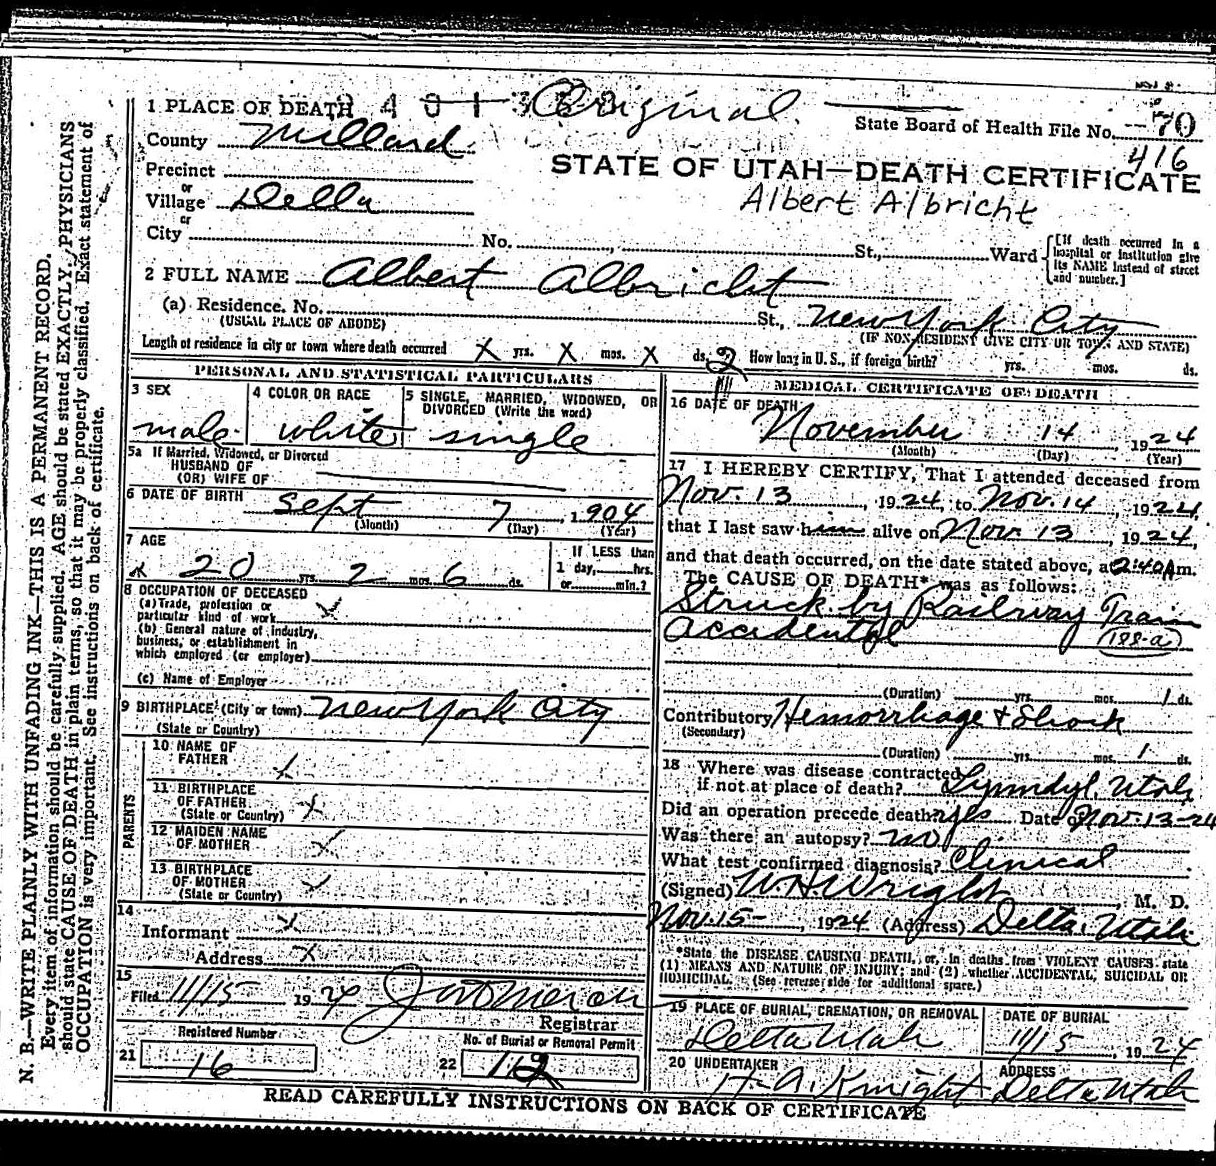 Original
1 PLACE OF DEATH
State Board of Health File No. 70
416
County Millard
STATE OF UTAH—DEATH CERTIFICATE
Precinct
or
Albert Albricht
Village Delta
or
City No. St., Ward
[If death occurred in a hospital or institution give its NAME instead of street and number.]
2 FULL NAME Albert Albricht
(a) Residence. No. St., New York City
(USUAL PLACE OF ABODE) (IF NON-RESIDENT GIVE CITY OR TOWN AND STATE)
Length of residence in city or town where death occurred X yrs. X mos. X ds. 2 How long in U. S., if foreign birth? yrs. mos. ds.
PERSONAL AND STATISTICAL PARTICULARS
3 SEX
male
4 COLOR OR RACE
white
5 SINGLE, MARRIED, WIDOWED, OR DIVORCED (Write the word)
single
5a If Married, Widowed, or Divorced
HUSBAND OF
(OR) WIFE OF
6 DATE OF BIRTH Sept 7, 1904
(Month) (Day) (Year)
7 AGE
20 yrs. 2 mos. 6 ds.
If LESS than
1 day, hrs.
or min.?
8 OCCUPATION OF DECEASED
(a) Trade, profession or
particular kind of work
(b) General nature of industry,
business, or establishment in
which employed (or employer)
(c) Name of Employer
9 BIRTHPLACE (City or town) New York City
(State or Country)
PARENTS
10 NAME OF
FATHER X
11 BIRTHPLACE
OF FATHER X
(State or Country)
12 MAIDEN NAME
OF MOTHER X
13 BIRTHPLACE
OF MOTHER
(State or Country)
14
Informant X
Address X
15
Filed 11/15 1924
Registrar
Registered Number
21 16
No. of Burial or Removal Permit
22 12
MEDICAL CERTIFICATE OF DEATH
16 DATE OF DEATH
November 14 1924
(Month) (Day) (Year)
17 I HEREBY CERTIFY, That I attended deceased from
Nov. 13, 1924, to Nov. 14, 1924,
that I last saw him alive on Nov. 13, 1924,
and that death occurred, on the date stated above, at 2:40 A m.
The CAUSE OF DEATH* was as follows:
Struck by Railway Train
Accidental (188-a)
(Duration) yrs. mos. 1 ds.
Contributory Hemorrhage & Shock
(Secondary)
(Duration) yrs. mos. 1 ds.
18 Where was disease contracted
if not at place of death? Lynndyl, Utah
Did an operation precede death? yes Date of Nov. 13-24
Was there an autopsy? no
What test confirmed diagnosis? Clinical
(Signed) W. H. Wright, M. D.
Nov. 15-, 1924 (Address) Delta, Utah
*State the DISEASE CAUSING DEATH, or, in deaths from VIOLENT CAUSES state
(1) MEANS AND NATURE OF INJURY; and (2) whether ACCIDENTAL, SUICIDAL OR
HOMICIDAL. (See reverse side for additional space.)
19 PLACE OF BURIAL, CREMATION, OR REMOVAL
Delta Utah
DATE OF BURIAL
11/15, 1924
20 UNDERTAKER
H. A. Knight
ADDRESS
Delta Utah
READ CAREFULLY INSTRUCTIONS ON BACK OF CERTIFICATE
N. B.—WRITE PLAINLY WITH UNFADING INK—THIS IS A PERMANENT RECORD.
Every item of information should be carefully supplied. AGE should be stated EXACTLY. PHYSICIANS
should state CAUSE OF DEATH in plain terms, so that it may be properly classified. Exact statement of
OCCUPATION is very important. See instructions on back of certificate.